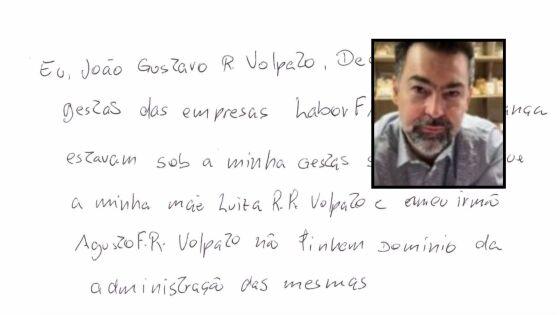 Eu, João Gustavo R Volpato, De
gestas das empresas LaborF
estavam sob a minha Gestas s
a minha mãe Luiza R.R. Volpato e o meu irmão
AgustoF.R. Volpato não tinhem Domínio da
administração das mesmas